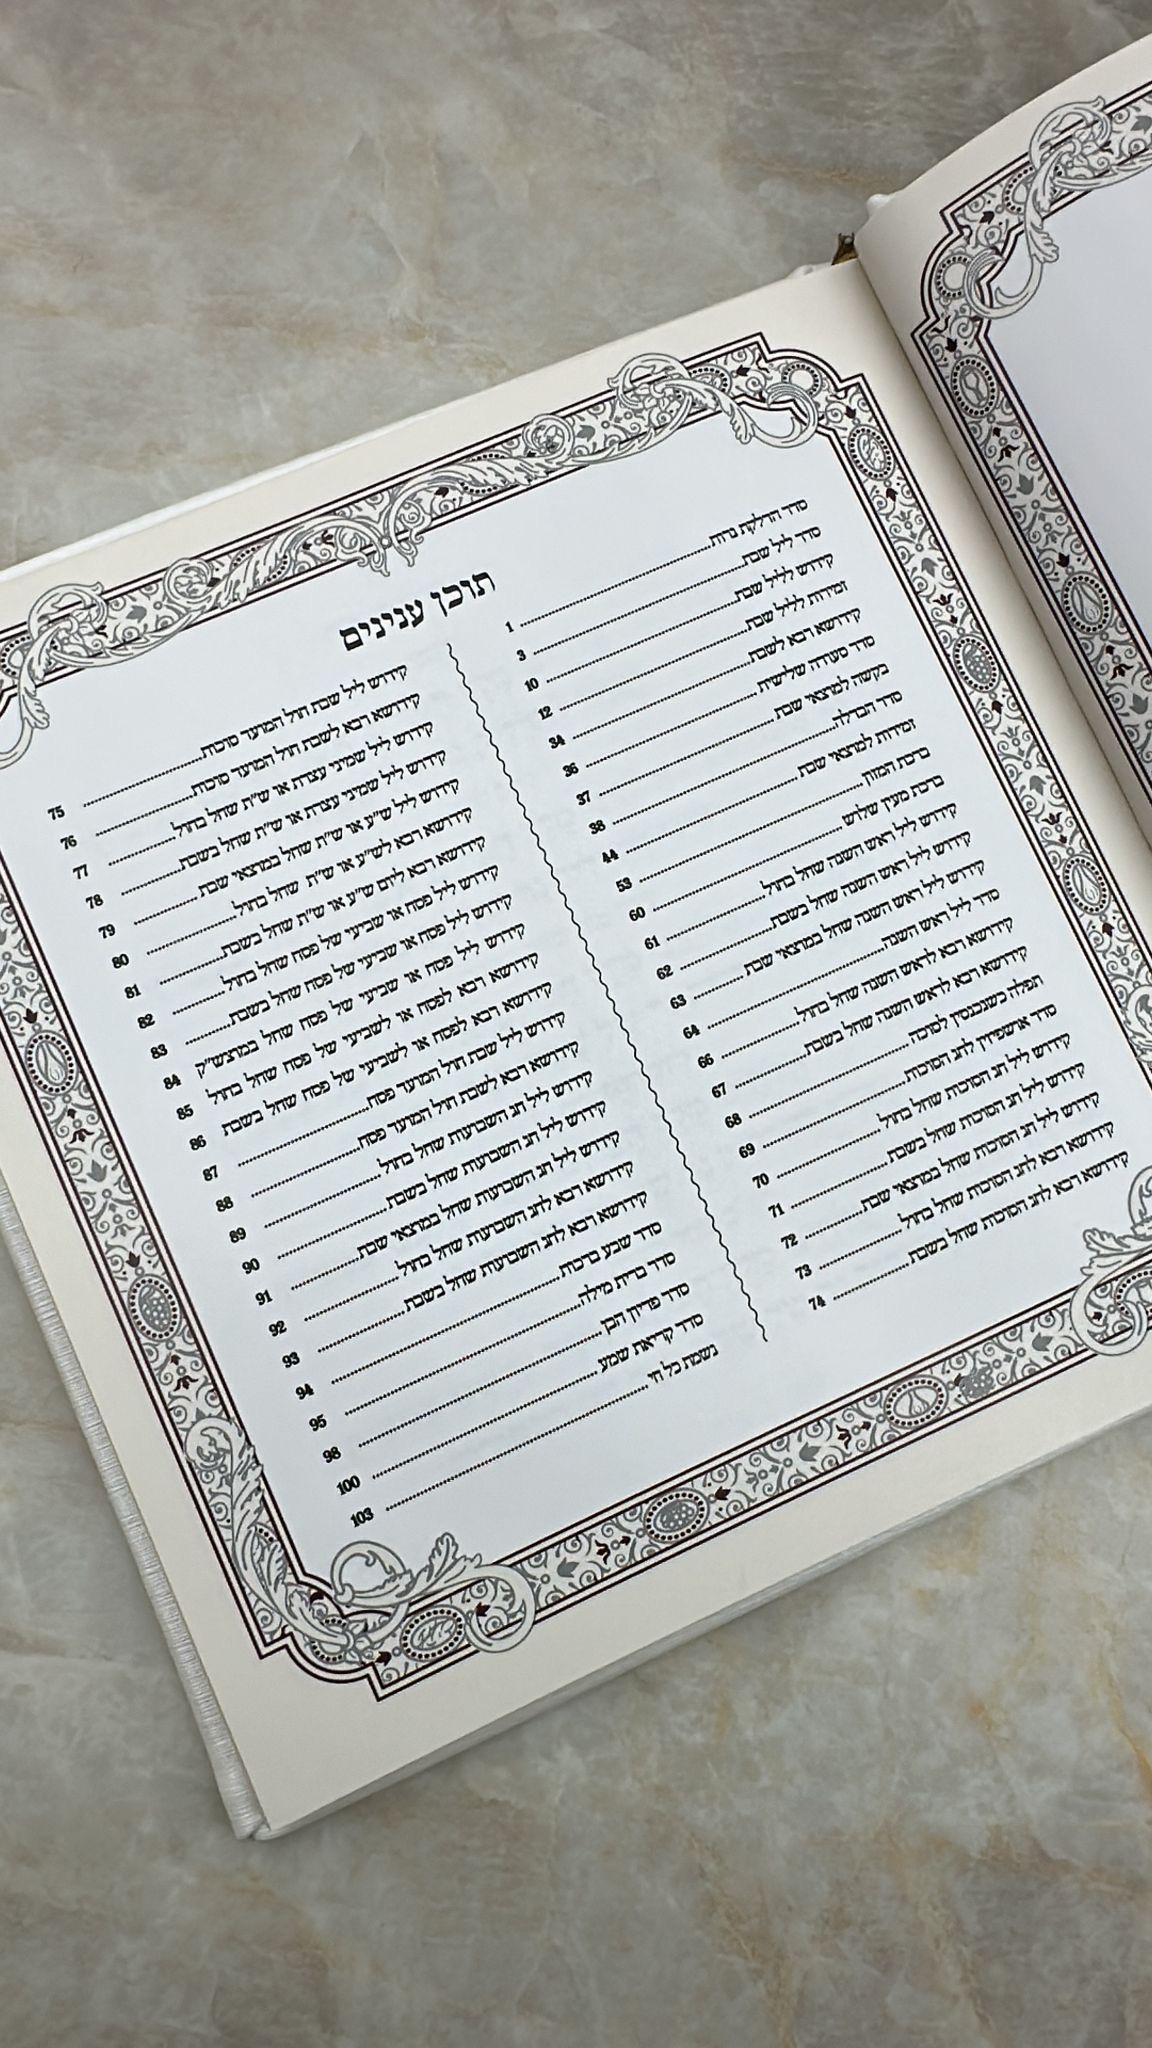 תוכן ענינים
סדר הדלקת נרות 1
סדר ליל שבת 3
קידוש לליל שבת 10
זמירות לליל שבת 12
קידושא רבא לשבת 34
סדר סעודה שלישית 36
בקשה למוצאי שבת 37
סדר הבדלה 38
זמירות למוצאי שבת 44
ברכת המזון 53
ברכת מעין שלוש 60
קידוש ליל ראש השנה שחל בחול 61
קידוש ליל ראש השנה שחל בשבת 62
קידוש ליל ראש השנה שחל במוצאי שבת 63
סדר ליל ראש השנה 64
קידושא רבא לראש השנה שחל בחול 66
קידושא רבא לראש השנה שחל בשבת 67
תפלה כשנכנסין לסוכה 68
סדר אושפיזין לחג הסוכות 69
קידוש ליל חג הסוכות שחל בחול 70
קידוש ליל חג הסוכות שחל בשבת 71
קידוש ליל חג הסוכות שחל במוצאי שבת 72
קידושא רבא לחג הסוכות שחל בחול 73
קידושא רבא לחג הסוכות שחל בשבת 74
קידוש ליל שבת חול המועד סוכות 75
קידושא רבא לשבת חול המועד סוכות 76
קידוש ליל שמיני עצרת או ש״ת שחל בחול 77
קידוש ליל שמיני עצרת או ש״ת שחל בשבת 78
קידוש ליל ש״ע או ש״ת שחל במוצאי שבת 79
קידושא רבא לש״ע או ש״ת שחל בחול 80
קידושא רבא ליום ש״ע או ש״ת שחל בשבת 81
קידוש ליל פסח או שביעי של פסח שחל בחול 82
קידוש ליל פסח או שביעי של פסח שחל בשבת 83
קידוש ליל פסח או שביעי של פסח שחל במוצש״ק 84
קידושא רבא לפסח או לשביעי של פסח שחל בחול 85
קידושא רבא לפסח או לשביעי של פסח שחל בשבת 86
קידוש ליל שבת חול המועד פסח 87
קידושא רבא לשבת חול המועד פסח 88
קידוש ליל חג השבועות שחל בחול 89
קידוש ליל חג השבועות שחל בשבת 90
קידוש ליל חג השבועות שחל במוצאי שבת 91
קידושא רבא לחג השבועות שחל בחול 92
קידושא רבא לחג השבועות שחל בשבת 93
סדר שבע ברכות 94
סדר ברית מילה 95
סדר פדיון הבן 98
סדר קריאת שמע 100
נשמת כל חי 103